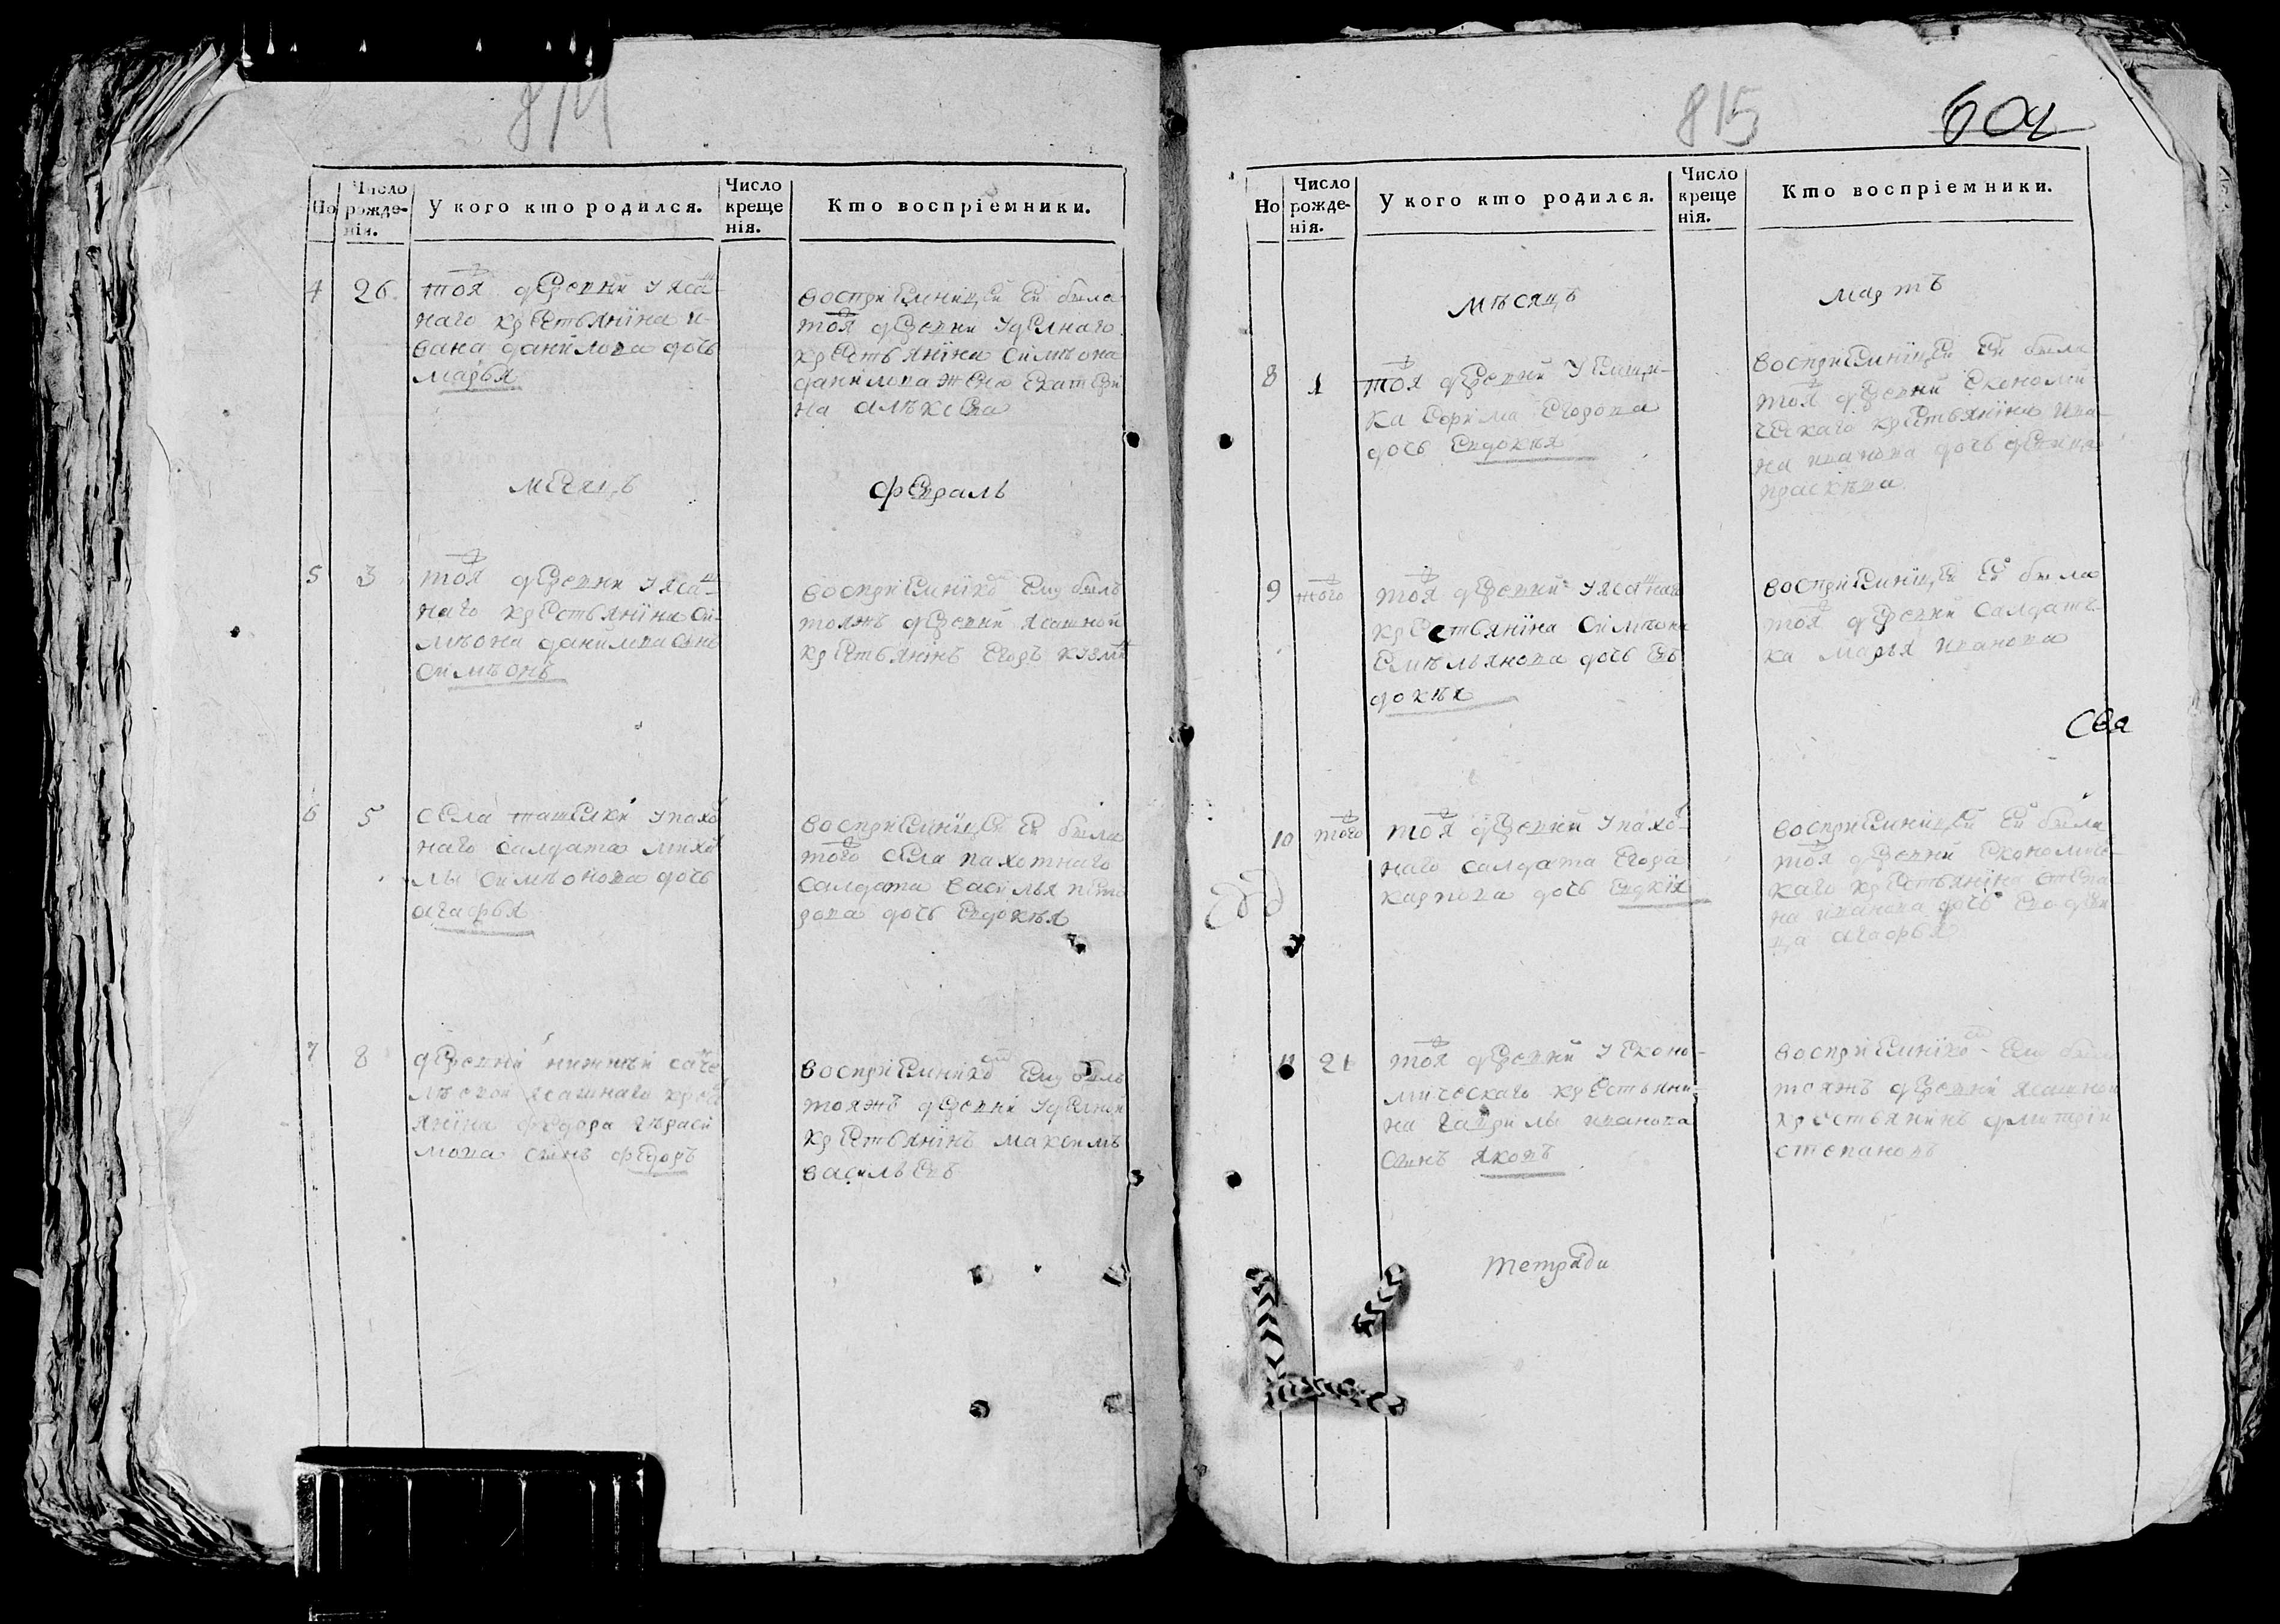 814
Но
Число рожде-нія.
У кого кто родился.
Число креще нія.
Кто воспріемники.
4
26
тоя деревни у яса-
наго крестьянїна и-
вана данилова дочь
марья
воспрïемницей ей была
тоя деревни уделнаго
крестьянїна симѣона
данилова жена екатери
на алѣксева
месяцъ
февраль
5
3
тоя деревни у ясаш-
наго крестьянїна си-
мѣона данилова сынъ
симѣонъ
воспрïемнїкомъ ему былъ
тояжъ деревни ясашной
крестьянïнъ егоръ кузми
6
5
села ташелки у пахо
наго салдата михаи
лы симѣонова дочь
агафья
воспрïемницей ей была
того села пахотнаго
салдата василья пето
рова дочь евдокѣя
7
8
деревни нижнѣй саче
ясашнаго крест
янїна федора гѣраси
мова сынъ федоръ
воспрïемнїкомъ ему былъ
тояжъ деревни уделной
крестьянїнъ максимъ
васильевъ
815
604
Но
Число рожде-нія.
У кого кто родился.
Число креще нія.
Кто воспріемники.
мѣсяцъ
мартъ
8
1
тоя деревни у емщи-
ка ефрима егорова
дочь евдокѣя
воспрïемнїцей ей была
тоя деревни економи
ческаго крестьянїна ива-
на иванова дочь девица
праскѣва
9
того
тоя деревни у ясашнаго
крестьянїна симѣона
емѣльянова дочь ев
докѣя
воспрïемнїцей ей была
тоя деревни салдатъ-
ка марья иванова
Свя
10
того
тоя деревни у пахо-
наго салдата егора
карпова дочь евдкїя
воспрïемницей ей была
тоя деревни економиче-
каго крестьянїна степа
на иванова дочь
ца агафья
11
21
тоя деревни у еконо-
мическаго крестьяни-
на гаврилы иванова
сынъ яковъ
воспрïемнїкомъ ему былъ
тояжъ деревни ясашной
крестьянинъ дмитрїи
степановъ
тетради